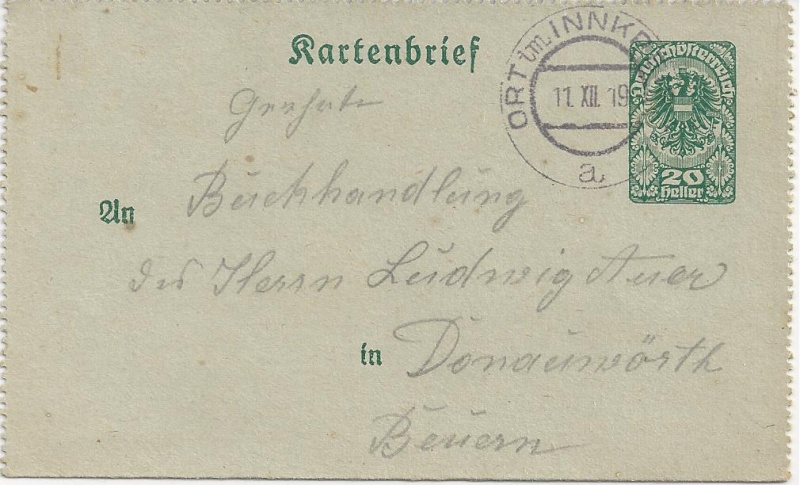 Kartenbrief
ORT im INNKR
11. XII. 19
a
Deutschösterreich
20
Heller
Geehrte
An Buchhandlung
des Herrn Ludwig Auer
in Donauwörth
Beuern